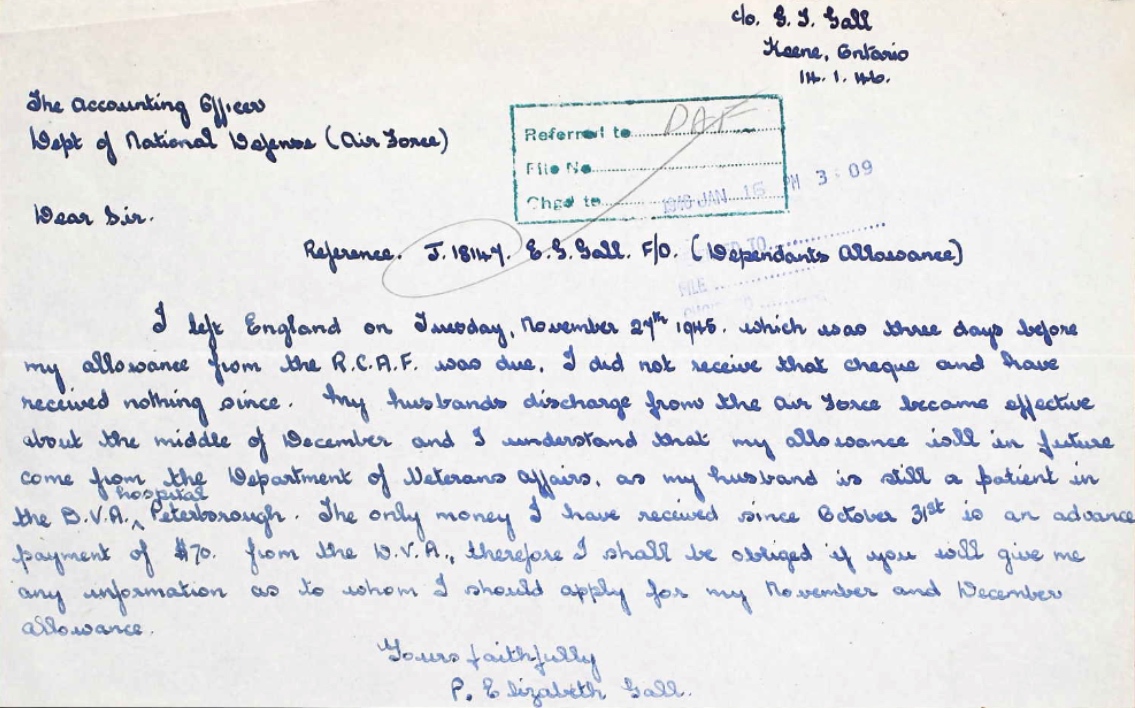 c/o. G. J. Gall
Keene, Ontario
14. 1. 46.
The Accounting Officer
Dept of National Defense (Air Force)
Referred to DAF
File No
Chgd to
1946 JAN 15 PM 3:09
Dear Sir.
Reference. J. 18147. E. G. Gall. F/O. (Dependants Allowance)
TO
FILE
I left England on Tuesday, November 27th 1945. which was three days before
my allowance from the R.C.A.F. was due, I did not receive that cheque and have
received nothing since. My husbands discharge from the Air Force became effective
about the middle of December and I understand that my allowance will in future
come from the Department of Veterans Affairs, as my husband is still a patient in
the D.V.A. hospital Peterborough. The only money I have received since October 31st is an advance
payment of $70. from the D.V.A., therefore I shall be obliged if you will give me
any information as to whom I should apply for my November and December
allowance.
Yours faithfully
P. Elizabeth Gall.